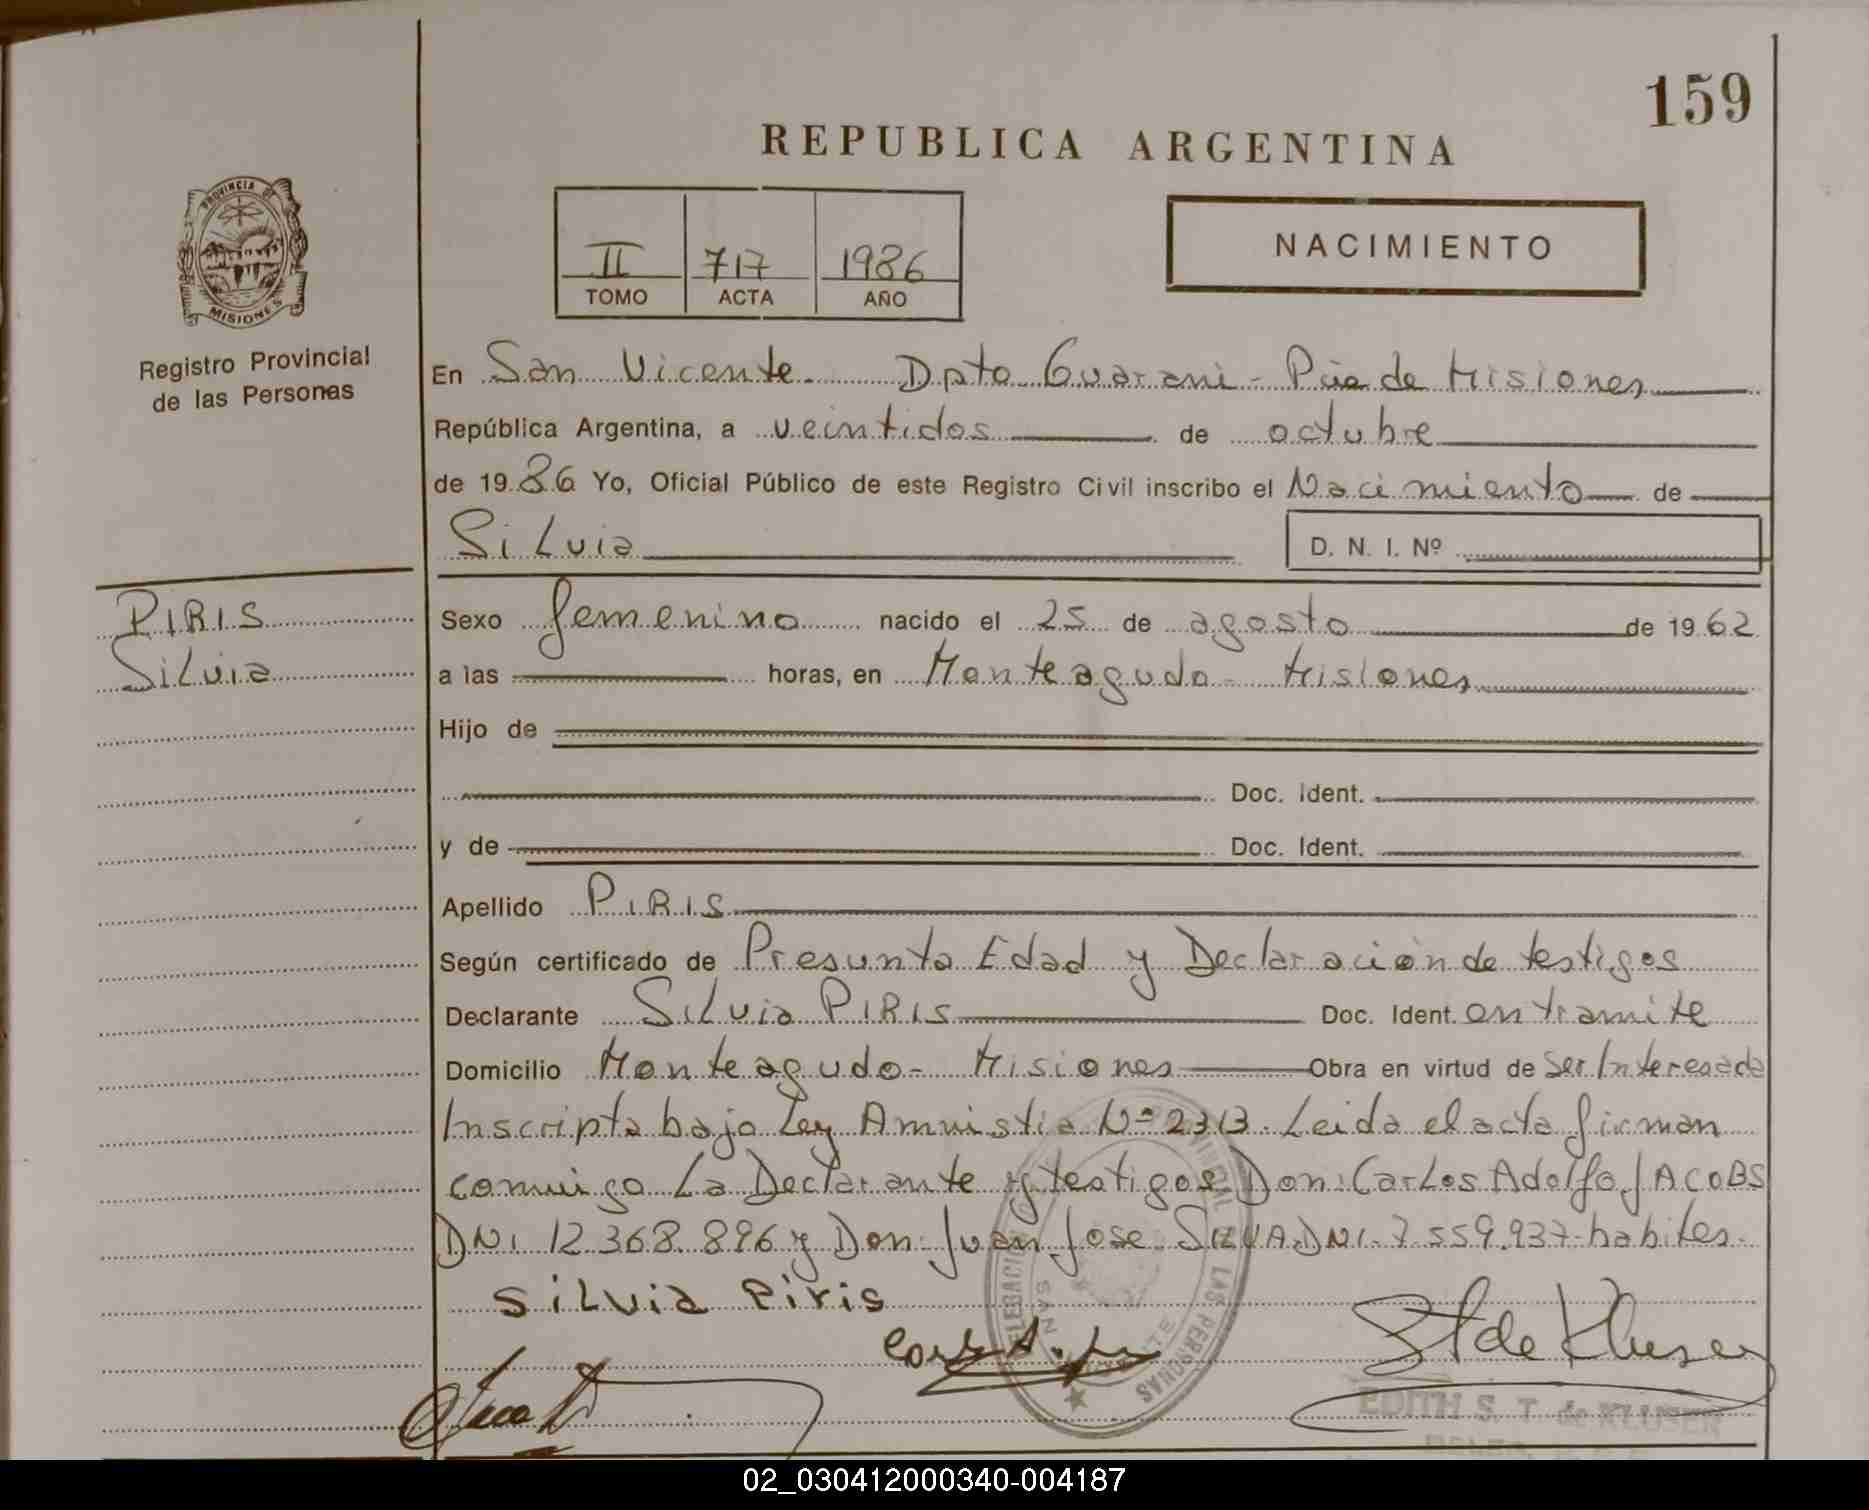 159
REPUBLICA ARGENTINA
PROVINCIA DE
MISIONES
Registro Provincial
de las Personas
II 717 1986
TOMO ACTA AÑO
NACIMIENTO
En San Vicente. Dpto Guarani - Pcia de Misiones
República Argentina, a veintidos de octubre
de 1986 Yo, Oficial Público de este Registro Civil inscribo el Nacimiento de
Silvia D. N. I. Nº
PIRIS
Silvia
Sexo femenino nacido el 25 de agosto de 1962
a las horas, en Monteagudo - Misiones
Hijo de
Doc. Ident.
y de Doc. Ident.
Apellido PIRIS
Según certificado de Presunta Edad y Declaración de testigos
Declarante Silvia PIRIS Doc. Ident. en tramite
Domicilio Monteagudo - Misiones Obra en virtud de Ser Interesada
Inscripta bajo Ley Amnistia Nº 2313. Leida el acta firman
conmigo La Declarante y testigos Don: Carlos Adolfo JACOBS
DNI 12.368.896 y Don: Juan Jose SILVA DNI. 7.559.937- habiles.
Silvia Piris
St de Klusen
EDITH S. T. de KLUSEN
02_030412000340-004187